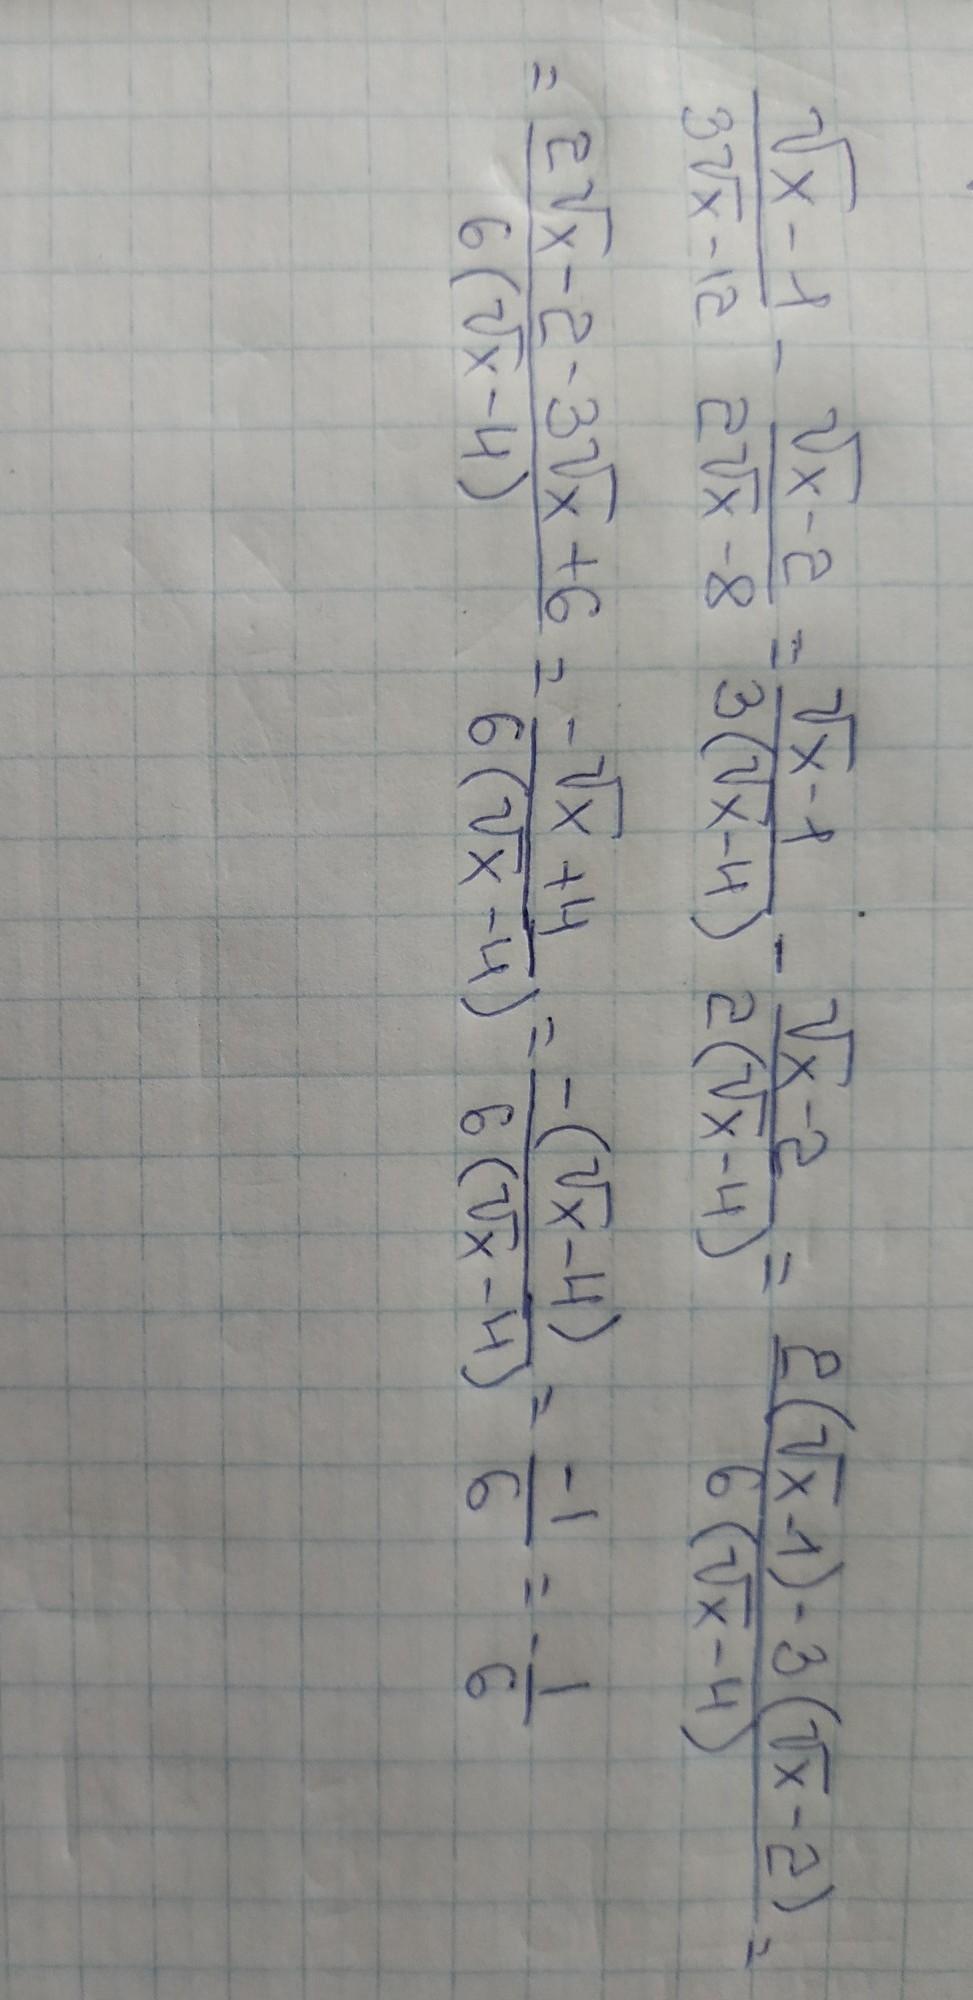 (√x-1)/(3√x-12) - (√x-2)/(2√x-8) = (√x-1)/(3(√x-4)) - (√x-2)/(2(√x-4)) = (2(√x-1)-3(√x-2))/(6(√x-4)) =
= (2√x-2-3√x+6)/(6(√x-4)) = (-√x+4)/(6(√x-4)) = (-(√x-4))/(6(√x-4)) = (-1)/6 = -1/6